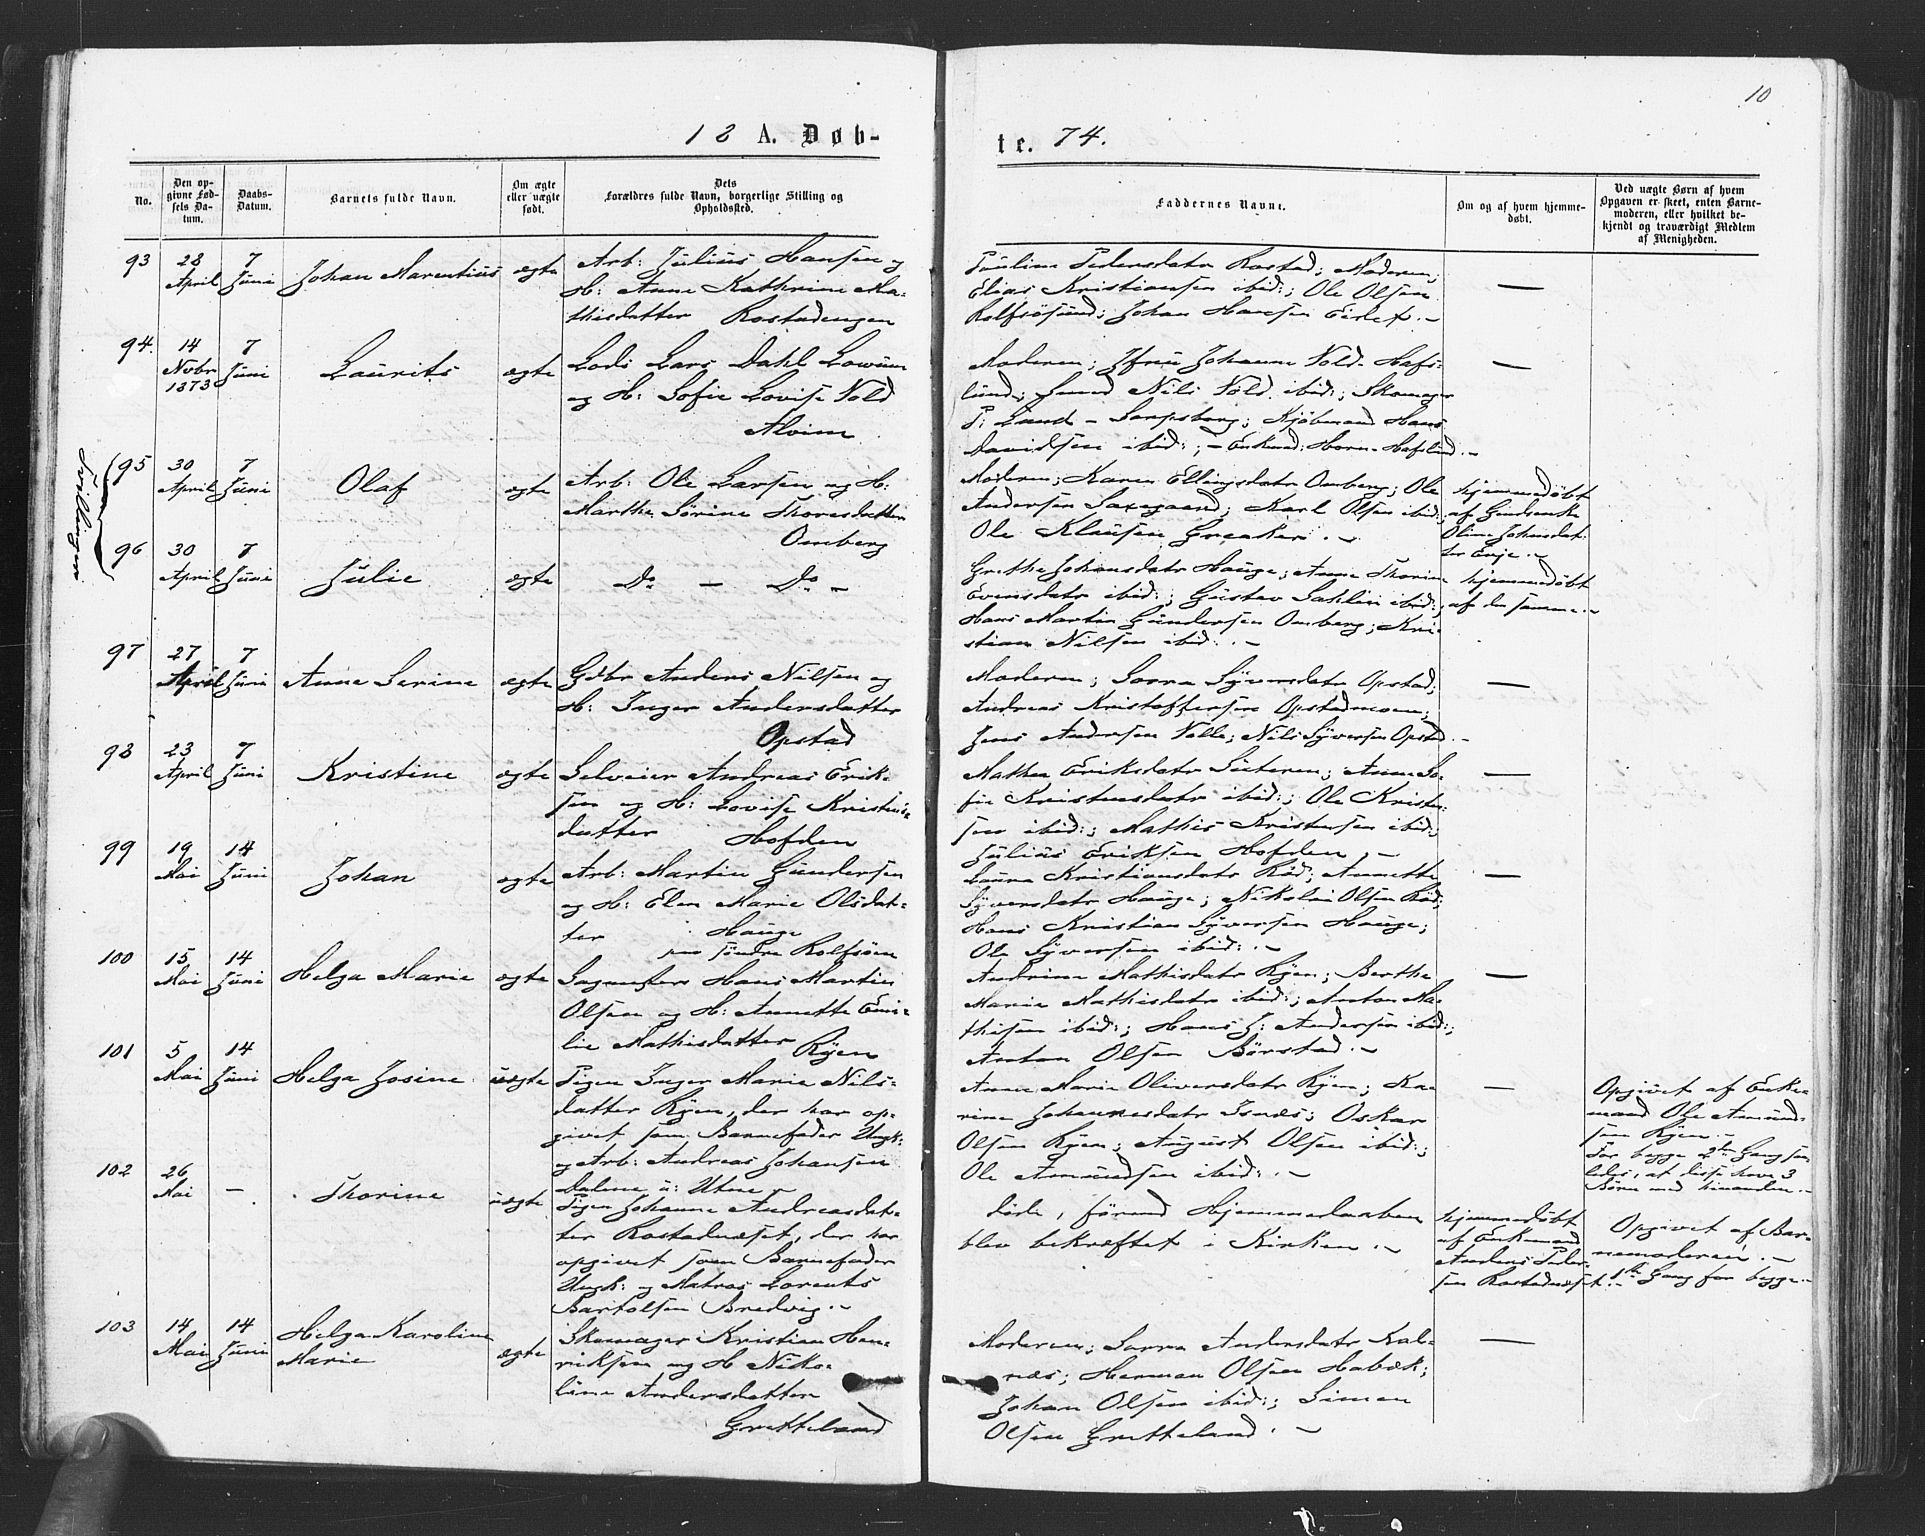 10
18 A. Døb-
te. 74.
No.
Den op-
givne Fød-
sels Da-
tum.
Daabs-
Datum.
Barnets fulde Navn.
Om ægte
eller uægte
født.
Dets
Forældres fulde Navn, borgerlige Stilling og
Opholdssted.
Faddernes Navne.
Om og af hvem hjemme-
døbt.
Ved uægte Børn af hvem
Opgaven er skeet, enten Barne-
moderen, eller hvilket be-
kjendt og troværdigt Medlem
af Menigheden.
93
28
April
7
Juni
Johan Marentius
ægte
Arb: Julius Hansen og
H: Anne Kathrine Ma-
thisdatter Rostadengen
Pauline Pedersdatr Rostad; Moderen;
Elias Kristiansen ibid:; Ole Olsen
Rolfsøsund; Johan Hansen Eidet. -
94.
14
Novbr
1873
7
Juni
Laurits
ægte
Lods Lars Dahl Lowum
og H: Sofie Lovise Vold
Alvim
Moderen; Jfru Johanne Vold Hafs-
lund; Smed Nils Vold ibid:; Skomager
P: Lund - Sarpsborg; Kjøbmand Hans
Davidsen ibid:; - Enkmd: Horn - Hafslund. -
Tvillinger
95
30
April
7
Juni
Olaf
ægte
Arb: Ole Larsen og H:
Marthe Sørine Thoresdatter
Omberg
Moderen; Karen Ellingsdatr Omberg; Ole
Andersen Saxegaard; Karl Olsen ibid:;
Ole Klausen Greaker. -
hjemmedøbt
af Gudsenke
Oline Johansdat-
ter Evje. -
96
30
April
7
Juni
Julie
ægte
Do - Do -
Grethe Johansdatr Hauge; Anne Thorine
Evensdatr ibid:; Gustav Sahlin ibid:;
Hans Martin Gundersen Omberg; Kri-
stian Nilsen ibid:. -
hjemmedøbt
af den samme. -
97
27
April
7
Juni
Anne Serine
ægte
Gdbr Anders Nilsen og
H: Inger Andersdatter
Opstad
Moderen; Sørra Syversdatr Opstad;
Andreas Kristoffersen Opstadmoen;
Jens Andersen Valle; Nils Syversen Opstad. -
98
23
April
7
Juni
Kristine
ægte
Selveier Andreas Erik-
sen og H: Lovise Kristens-
datter Hofden
Mathea Eriksdatr Sæteren; Anne So-
fie Kristensdatr ibid:; Ole Kristen-
sen ibid:; Mathis Kristensen ibid:;
Julius Eriksen Hofden -
99
19
Mai
14
Juni
Johan
ægte
Arb: Martin Gundersen
og H: Elen Marie Olsdat-
ter Hauge
paa søndre Rolfsøen
Laura Kristiansdatr Rød; Annette
Syversdatr Hauge; Nikolai Olsen Rød;
Hans Kristian Syversen Hauge;
Ole Syversen ibid:. -
100
15
Mai
14
Juni
Helga Marie
ægte
Sagmester Hans Martin
Olsen og H: Annette Emi-
lie Mathisdatter Ryen
Andrine Mathisdatr Ryen; Berthe
Marie Mathisdatr ibid:; Anton Ma-
thisen ibid:; Hans J: Andersen ibid:;
Anton Olsen Børstad. -
101
5
Mai
14
Juni
Helga Josine
uægte
Pigen Inger Marie Nils-
datter Ryen, der har op-
givet som Barnefader Ungk:
og Arb: Andreas Johansen
Dalene u: Utne -
Anne Marie Oliversdatr Ryen; Ka-
rine Johannesdatr Isnæs; Oskar
Olsen Ryen; August Olsen ibid:;
Ole Amundsen ibid:. -
Opgivet af Enke-
mand Ole Amund-
sen Ryen. -
For begge 2den Gang saa-
ledes, at disse have 3
Børn med hinanden. -
102
26
Mai
-
Thorine
uægte
Pigen Johanne Andreasdat-
ter Rostadnæset, der har
opgivet som Barnefader
Ungk: og Matros Lorents
Bartolsen Bredvig. -
døde, førend Hjemmedaaben
blev bekræftet i Kirken. -
hjemmedøbt
af Enkemand
Anders Peder-
sen Rostadnæset. -
Opgivet af Bar-
nemoderen. -
1ste Gang for begge. -
103
14
Mai
14
Juni
Helga Karoline
Marie
ægte
Skomager Kristian Hen-
riksen og H Niko-
line Andersdatter
Grætteland
Moderen; Sørra Andersdatr Kal-
næs; Herman Olsen Habæk;
Johan Olsen ibid:; Simen
Olsen Grætteland. -